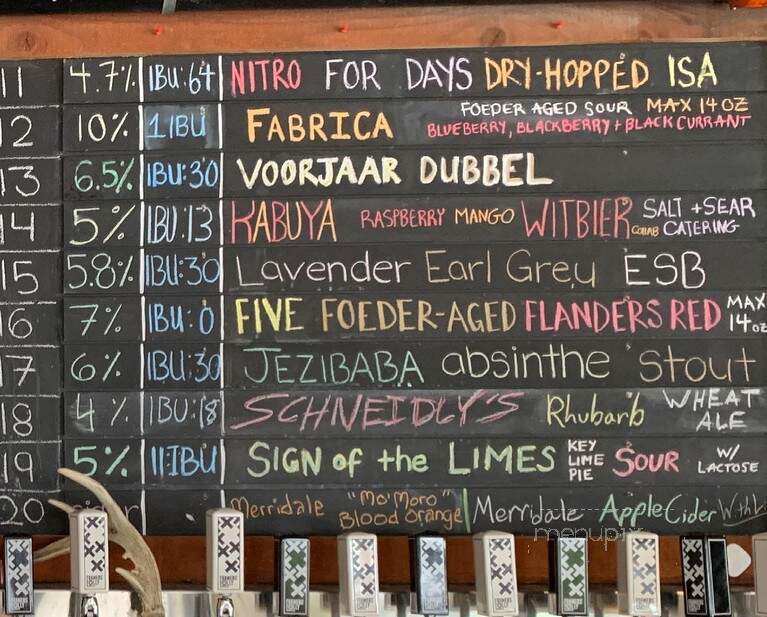 11 4.7% IBU:64 NITRO FOR DAYS DRY-HOPPED ISA
12 10% 1 IBU FABRICA FOEDER AGED SOUR MAX 14 OZ
BLUEBERRY, BLACKBERRY + BLACK CURRANT
13 6.5% IBU:30 VOORJAAR DUBBEL
14 5% IBU:13 KABUYA RASPBERRY MANGO WITBIER COLLAB SALT + SEAR
CATERING
15 5.8% IBU:30 Lavender Earl Grey ESB
16 7% IBU:0 FIVE FOEDER-AGED FLANDERS RED MAX
14oz
17 6% IBU:30 JEZIBABA absinthe stout
18 4% IBU:18 SCHNEIDLY'S Rhubarb WHEAT
ALE
19 5% 11 IBU SIGN of the LIMES KEY
LIME
PIE SOUR W/
LACTOSE
20 cider Merridale "Mo'Moro"
Blood Orange Merridale Apple Cider
menupix